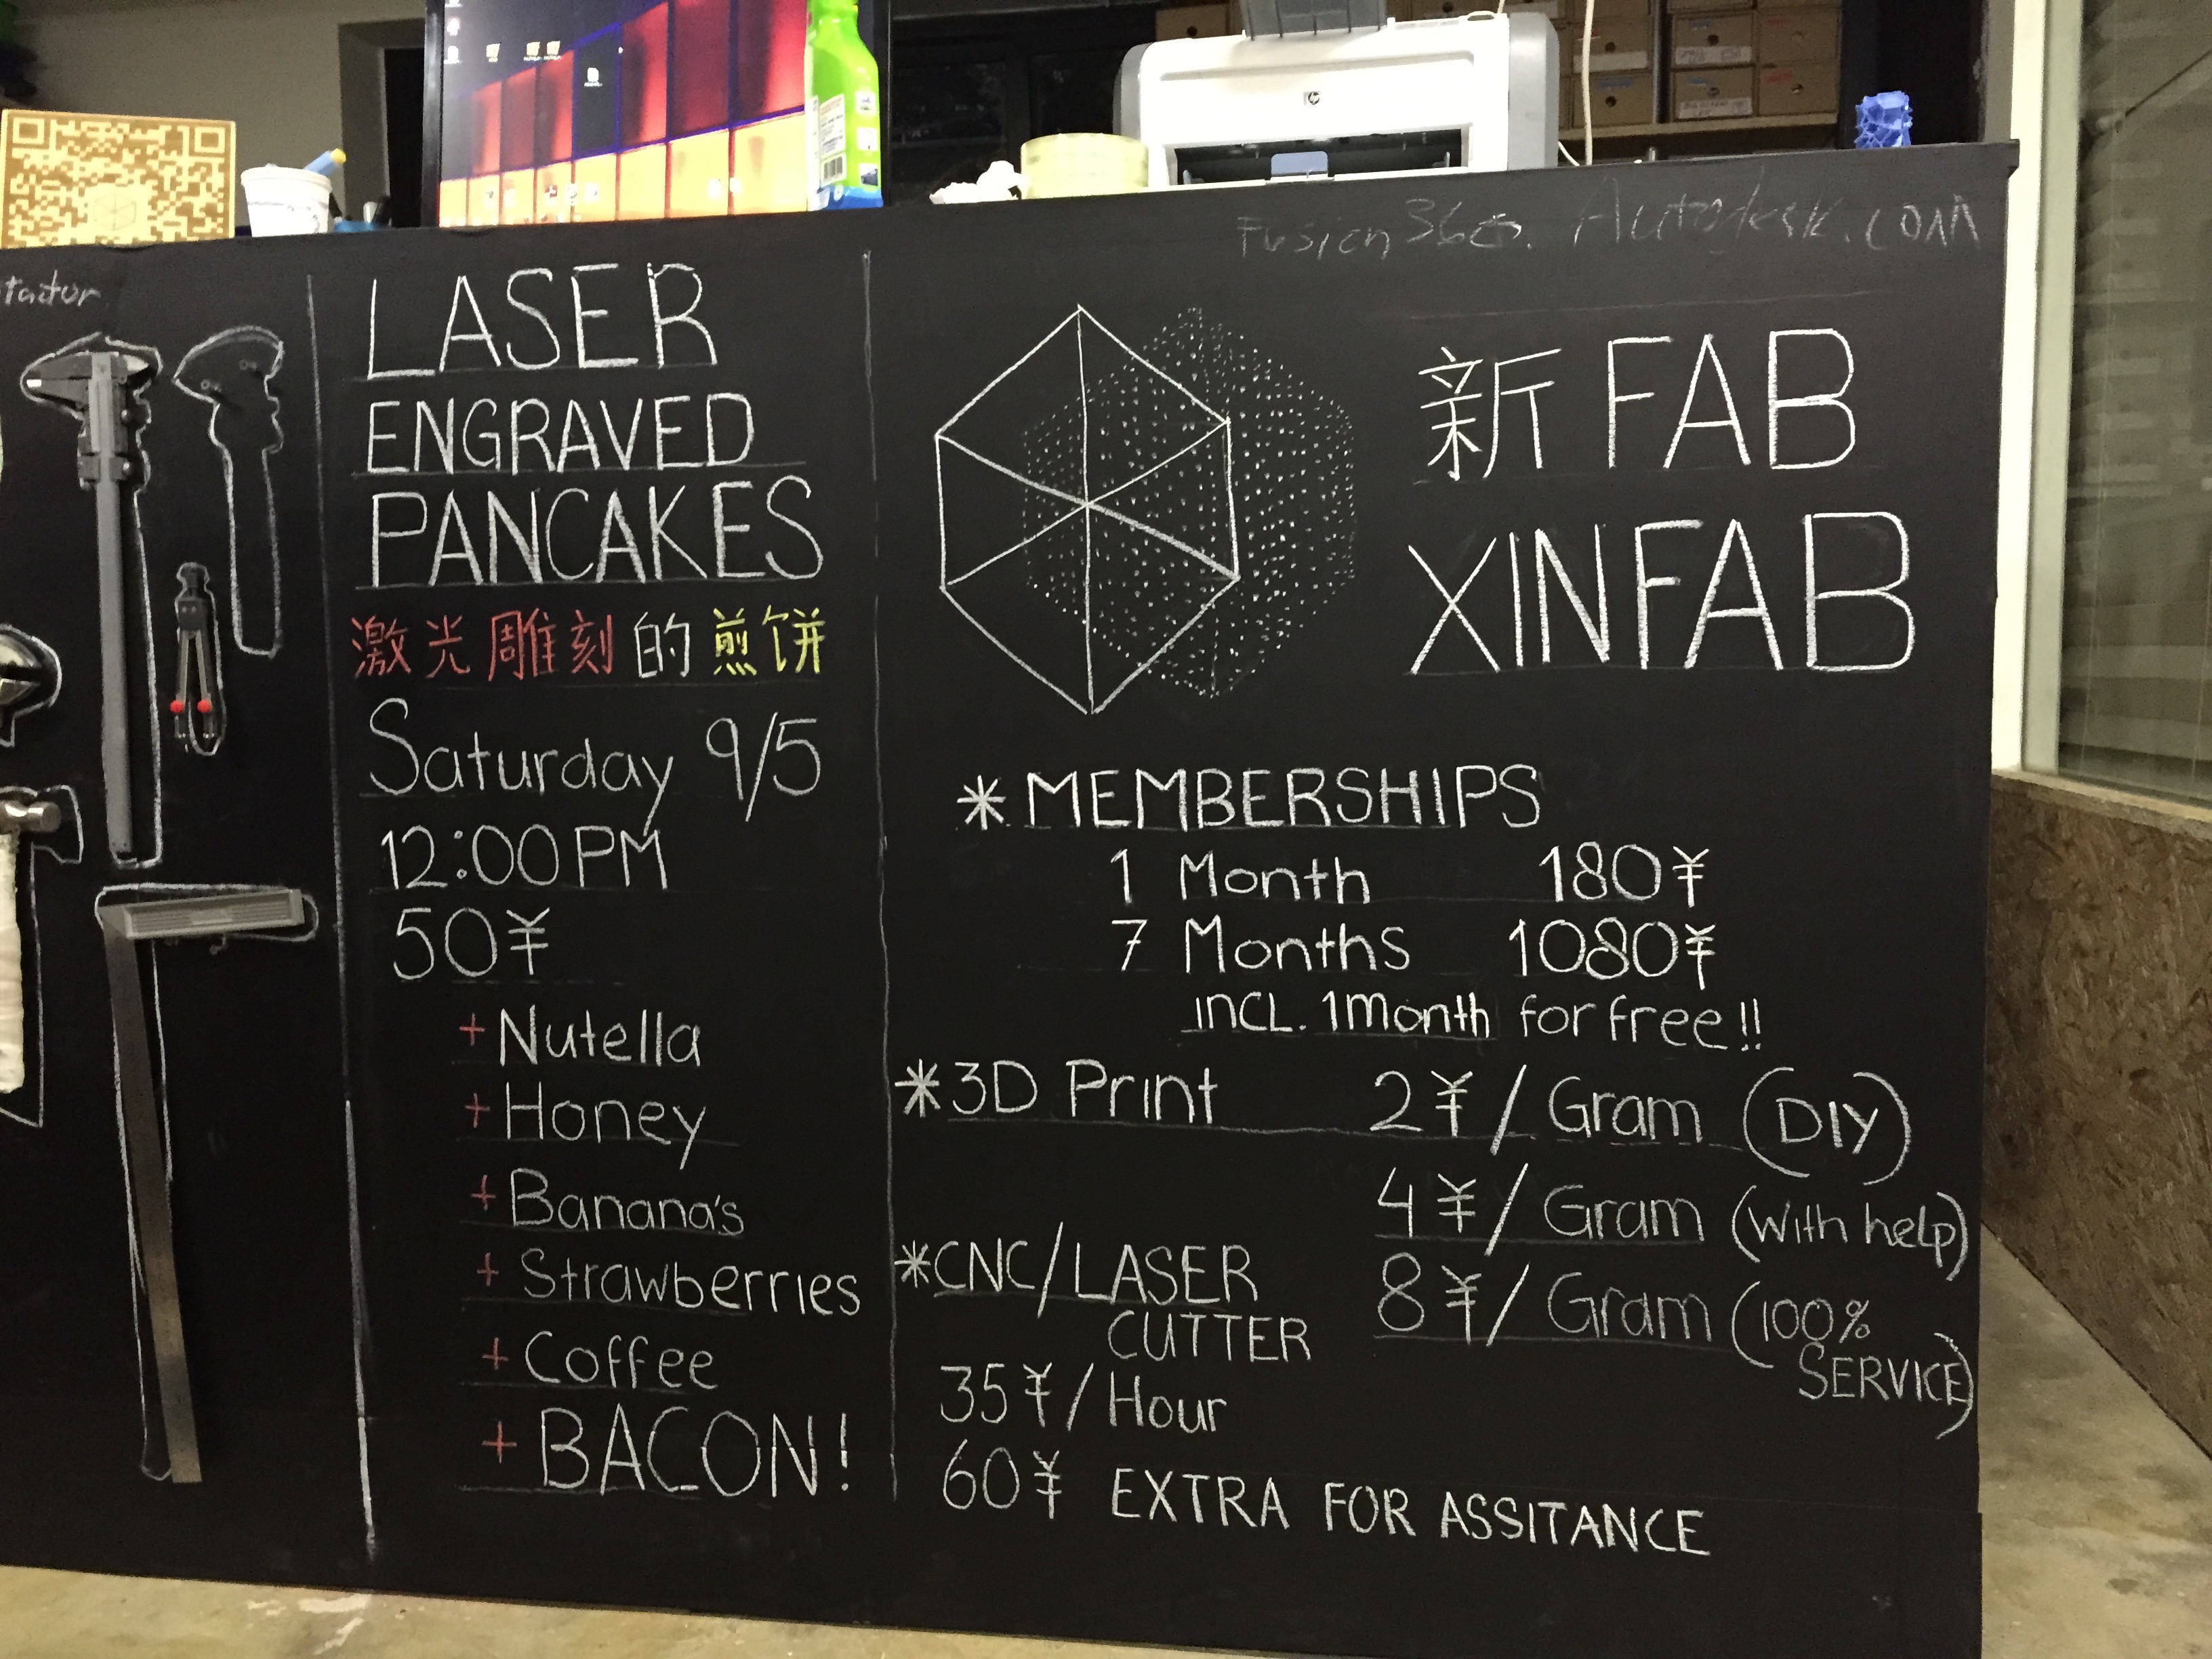 Fusion360. Autodesk.com
LASER
ENGRAVED
PANCAKES
激光雕刻的煎饼
Saturday 9/5
12:00PM
50¥
+ Nutella
+ Honey
+ Banana's
+ Strawberries
+ Coffee
+ BACON!
新 FAB
XINFAB
* MEMBERSHIPS
1 Month 180¥
7 Months 1080¥
INCL. 1 month for free!!
* 3D Print 2¥/Gram (DIY)
4¥/Gram (With help)
8¥/Gram (100%
SERVICE)
* CNC/LASER
CUTTER
35¥/Hour
60¥ EXTRA FOR ASSITANCE
hp